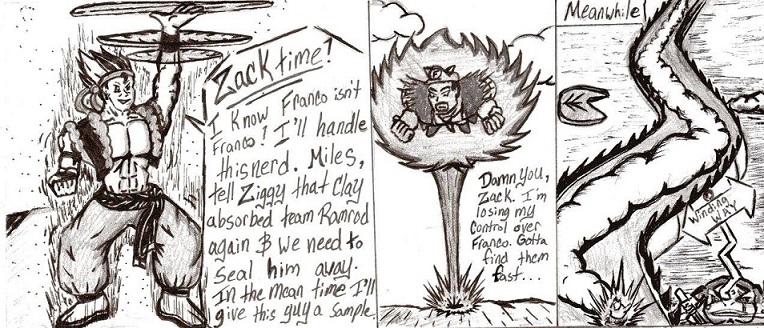 Zack time!
I Know Franco isn't
Franco! I'll handle
this nerd. Miles,
tell Ziggy that Clay
absorbed team Ramrod
again & we need to
seal him away.
In the mean time I'll
give this guy a sample.
Damn you,
Zack. I'm
losing my
control over
Franco. Gotta
find them
fast...
Meanwhile!
Winding
WAY